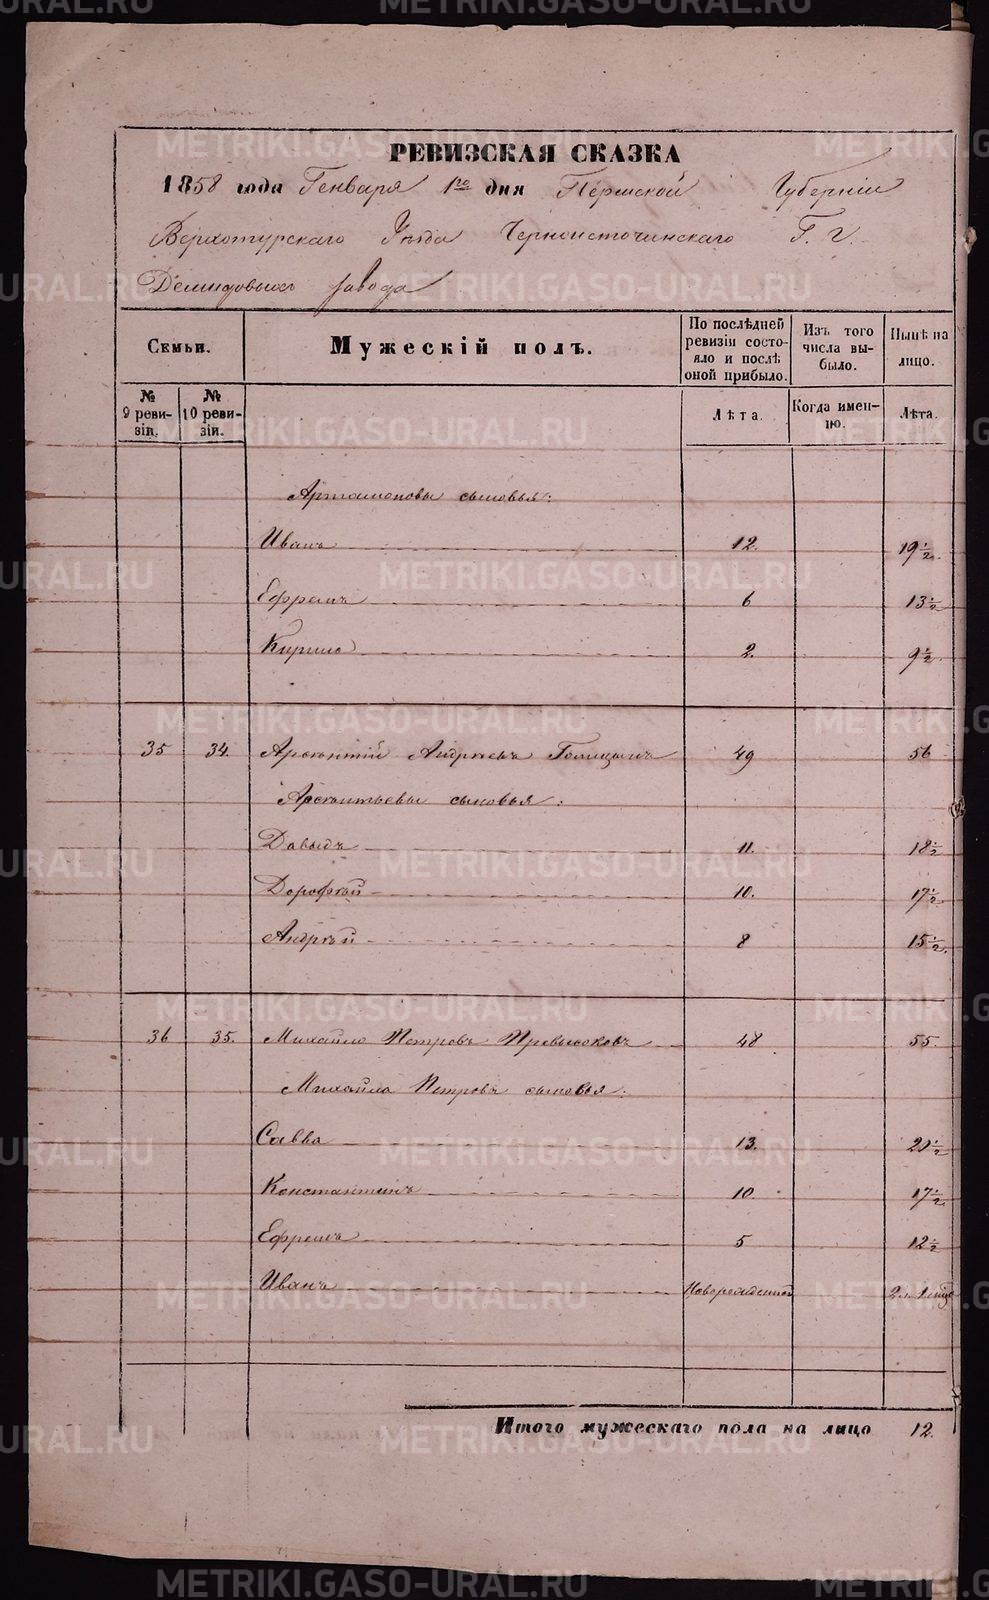 РЕВИЗСКАЯ СКАЗКА
1858 года Генваря 1го дня Пермской Губерніи
Верхотурскаго Уѣзда Черноисточинскаго Г. г.
Демидовыхъ завода
Семьи.
Мужескій полъ.
По послѣдней ревизіи состояло и послѣ оной прибыло.
Изъ того числа выбыло.
Нынѣ на лицо.
№ 9 ревизіи.
№ 10 ревизіи.
Лѣта.
Когда именно.
Лѣта.
Артамоновы сыновья:
Иванъ 12. 19½.
Ефремъ 6 13½
Кирило 2. 9½
35 34. Арсентій Андреевъ Голицынъ 49 56
Арсентьевы сыновья:
Давыдъ 11. 18½
Дорофѣй 10. 17½
Андрѣй 8 15½.
36 35. Михайло Петровъ Превысоковъ 48 55.
Михайла Петрова сыновья:
Савва 13. 20½
Константинъ 10. 17½
Ефремъ 5 12½
Иванъ Новорожденной
Итого мужескаго пола на лицо 12.
METRIKI.GASO-URAL.RU